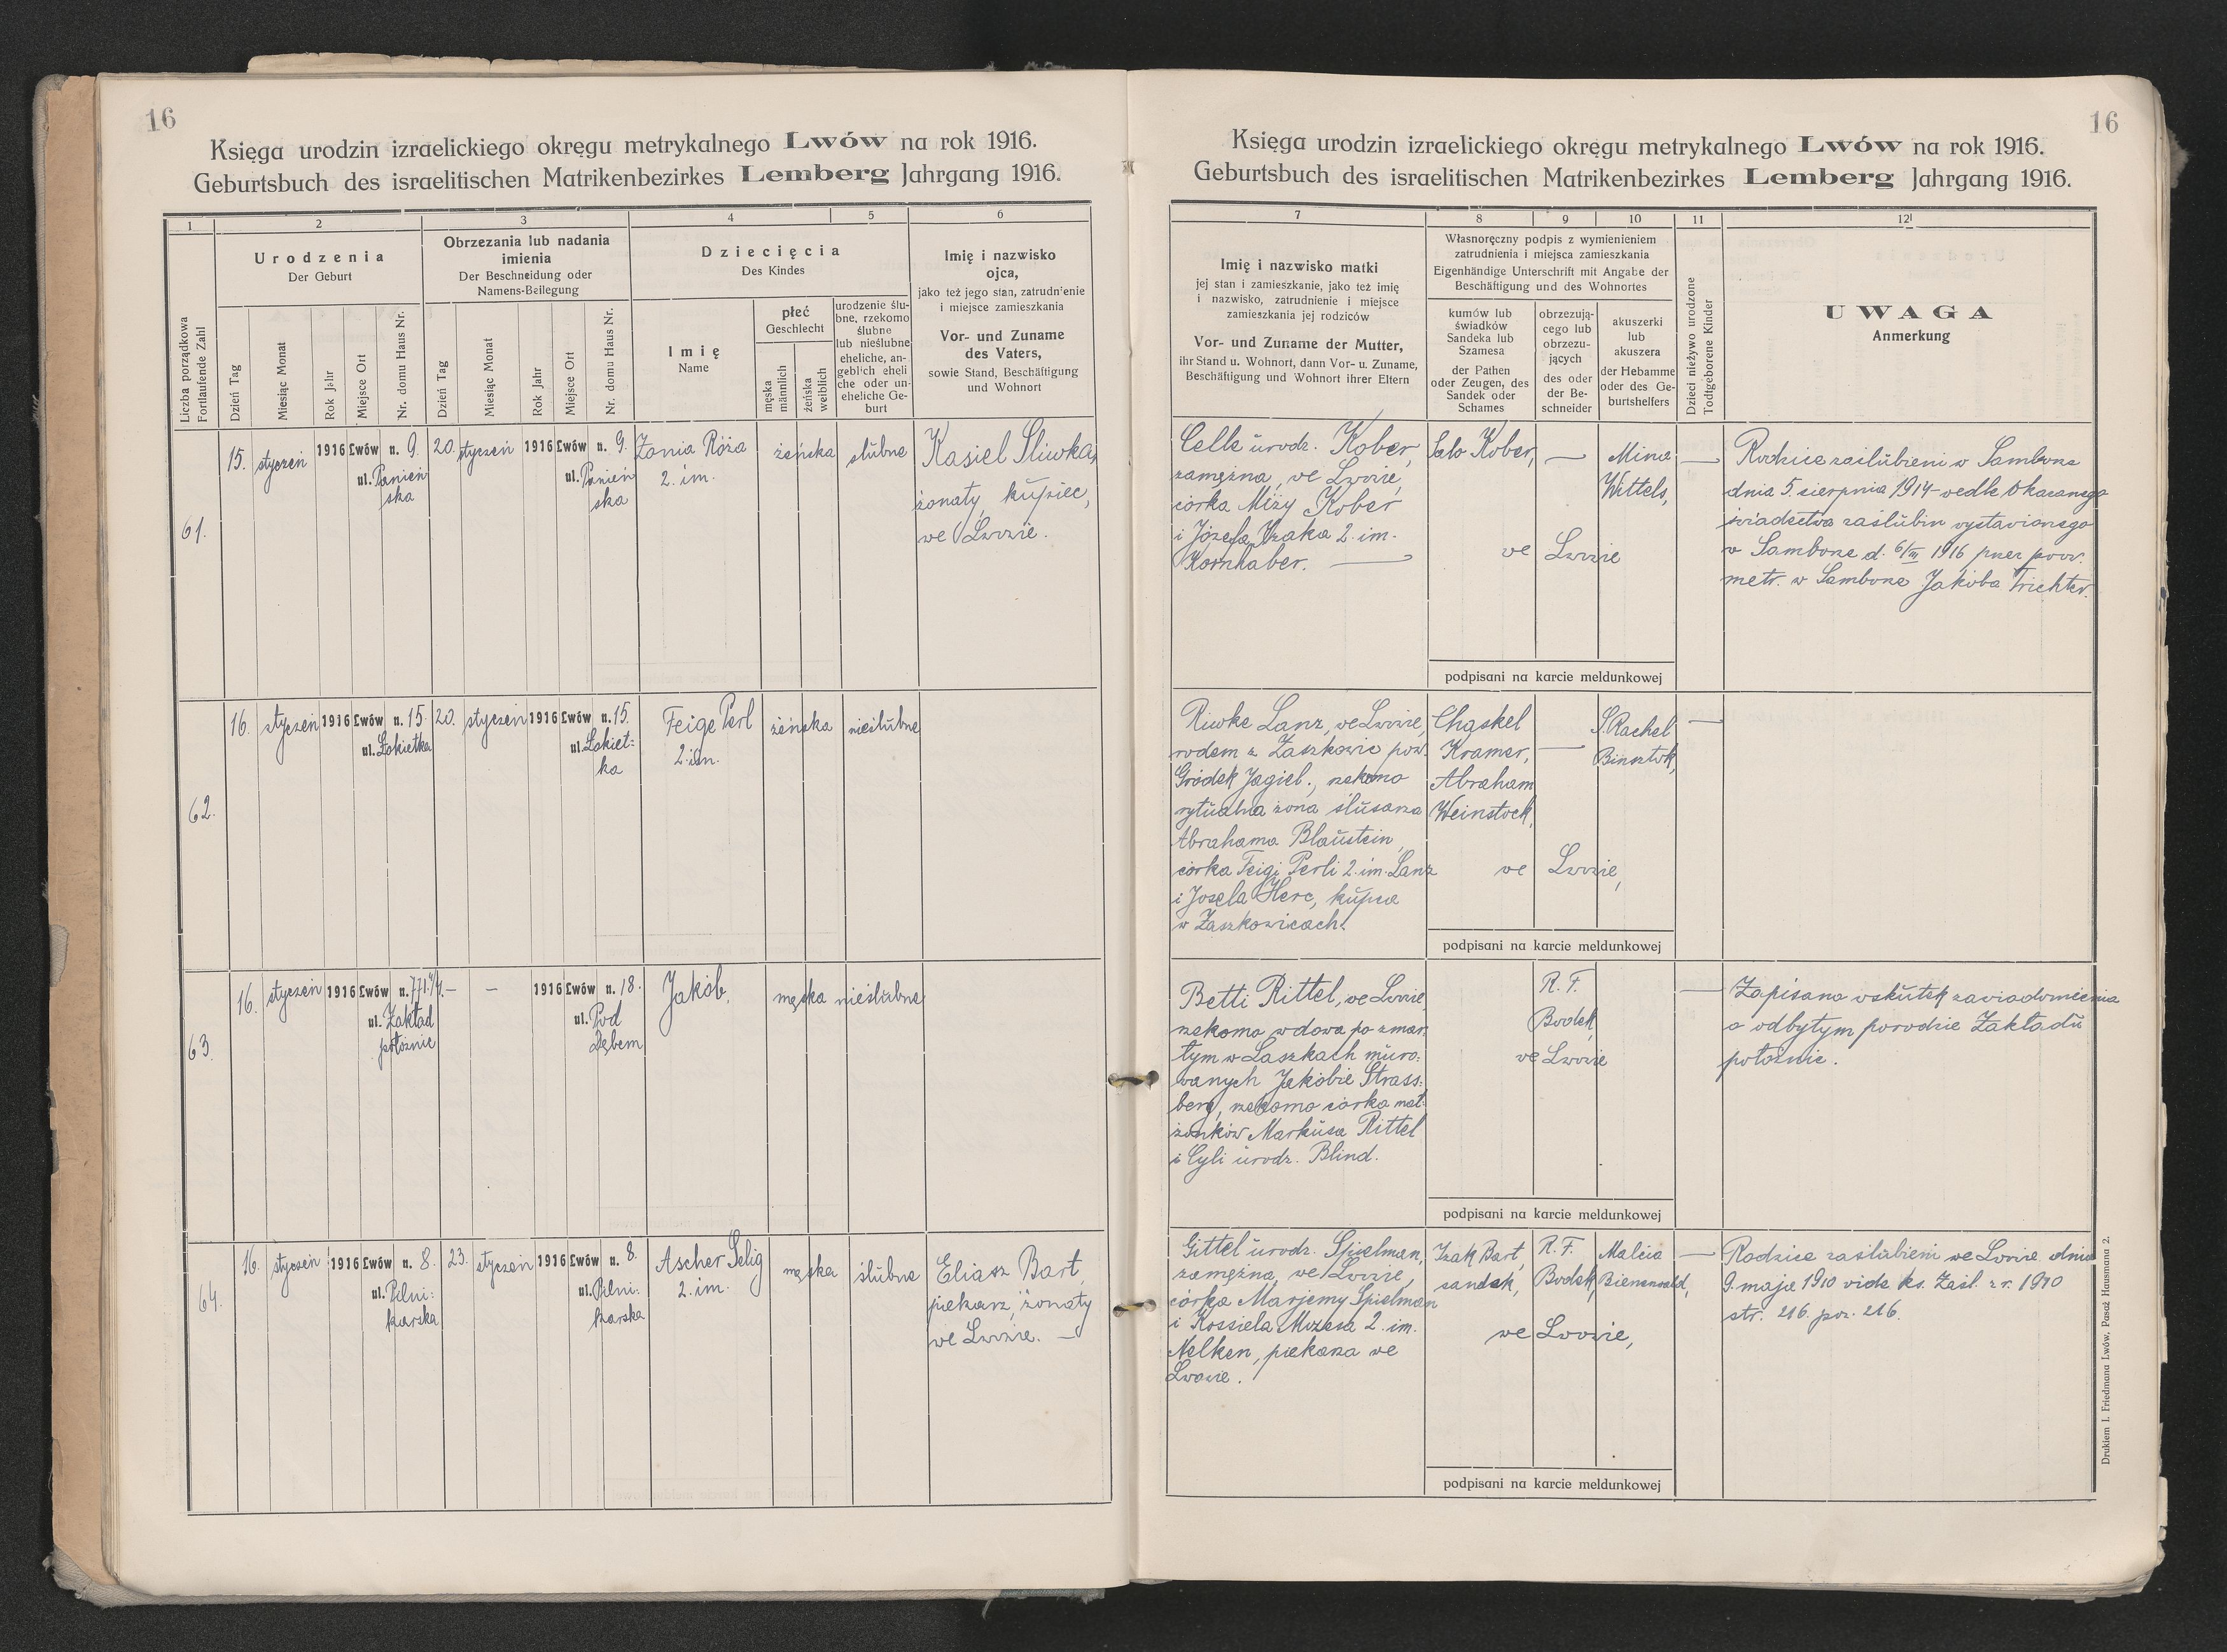 16
Księga urodzin izraelickiego okręgu metrykalnego Lwów na rok 1916.
Geburtsbuch des israelitischen Matrikenbezirkes Lemberg Jahrgang 1916.
1
2
3
4
5
6
Liczba porządkowa
Fortlaufende Zahl
Urodzenia
Der Geburt
Dzień Tag
Miesiąc Monat
Rok Jahr
Miejsce Ort
Nr. domu Haus Nr.
Obrzezania lub nadania
imienia
Der Beschneidung oder
Namens-Beilegung
Dzień Tag
Miesiąc Monat
Rok Jahr
Miejsce Ort
Nr. domu Haus Nr.
Dziecięcia
Des Kindes
Imię
Name
płeć
Geschlecht
męska
männlich
żeńska
weiblich
urodzenie ślu-
bne, rzekomo
ślubne
lub nieślubne
eheliche, an-
geblich eheli
che oder un-
eheliche Ge-
burt
Imię i nazwisko
ojca,
jako też jego stan, zatrudnienie
i miejsce zamieszkania
Vor- und Zuname
des Vaters,
sowie Stand, Beschäftigung
und Wohnort
61.
15. styczeń 1916 Lwów n. 9.
ul. Panień
ska
20. styczeń 1916 Lwów n. 9.
ul. Panień
ska
Zania Róża
2. im.
żeńska
ślubne
Kasiel Sliwka,
żonaty, kupiec,
we Lwowie.
62.
16. styczeń 1916 Lwów n. 15.
ul. Łokietka
20. styczeń 1916 Lwów n. 15.
ul. Łokiet=
ka
Feige Perl
2. im.
żeńska
nieślubne
63.
16. styczeń 1916 Lwów n. 771.4/4.
ul. Zakład
położnic
— — 1916 Lwów n. 18.
ul. Pod
Dębem
Jakób,
męska
nieślubne
64.
16. styczeń 1916 Lwów n. 8.
ul. Pilni=
karska
23. styczeń 1916 Lwów n. 8.
ul. Pilni=
karska
Ascher Selig
2. im.
męska
ślubne
Eliasz Bart,
piekarz, żonaty
we Lwowie. —
16
Księga urodzin izraelickiego okręgu metrykalnego Lwów na rok 1916.
Geburtsbuch des israelitischen Matrikenbezirkes Lemberg Jahrgang 1916.
7
8
9
10
11
12
Imię i nazwisko matki
jej stan i zamieszkanie, jako też imię
i nazwisko, zatrudnienie i miejsce
zamieszkania jej rodziców
Vor- und Zuname der Mutter,
ihr Stand u. Wohnort, dann Vor- u. Zuname,
Beschäftigung und Wohnort ihrer Eltern
Własnoręczny podpis z wymienieniem
zatrudnienia i miejsca zamieszkania
Eigenhändige Unterschrift mit Angabe der
Beschäftigung und des Wohnortes
kumów lub
świadków
Sandeka lub
Szamesa
der Pathen
oder Zeugen, des
Sandek oder
Schames
obrzezują-
cego lub
obrzezu-
jących
des oder
der Be-
schneider
akuszerki
lub
akuszera
der Hebamme
oder des Ge-
burtshelfers
Dzieci nieżywo urodzone
Todtgeborene Kinder
UWAGA
Anmerkung
Celle urodz. Kober,
zamężna, we Lwowie,
córka Mizy Kober
i Józefa Izaka 2. im.
Kornhaber. —
Salo Kober,
—
Mina
Wittels,
we Lwowie
—
Rodzice zaślubieni w Samborze
dnia 5. sierpnia 1914 wedle okazanego
świadectwa zaślubin wystawionego
w Samborze d. 6/III 1916 przez prow.
metr. w Samborze Jakóba Trichter.
podpisani na karcie meldunkowej
Riwke Lanz, we Lwowie,
rodem z Zaszkowic pow.
Gródek Jagiel., rzekomo
rytualna żona ślusarza
Abrahama Blaustein,
córka Feigi Perli 2. im. Lanz
i Josela Herc, kupca
w Zaszkowicach.
Chaskel
Kramer,
Abraham
Weinstock,
—
S. Rachel
Binsztok,
we Lwowie,
—
podpisani na karcie meldunkowej
Betti Rittel, we Lwowie,
rzekomo wdowa po zmar=
łym w Laszkach muro=
wanych Jakóbie Strass=
berg, rzekomo córka mał=
żonków Markusa Rittel
i Cyli urodz. Blind.
R. F.
Bodek,
we Lwowie
—
Zapisano wskutek zawiadomienia
o odbytym porodzie Zakładu
położnic.
podpisani na karcie meldunkowej
Gittel urodz. Spielman,
zamężna, we Lwowie,
córka Marjemy Spielman
i Kossiela Mozesa 2. im.
Nelken, piekarza we
Lwowie.
Izak Bart,
sandek,
R. F.
Bodek,
Malcia
Bienenwald,
we Lwowie,
—
Rodzice zaślubieni we Lwowie dnia
9. maja 1910 vide ks. Zaśl. z r. 1910
str. 216. poz. 216.
podpisani na karcie meldunkowej
Drukiem I. Friedmana Lwów, Pasaż Hausmana 2.